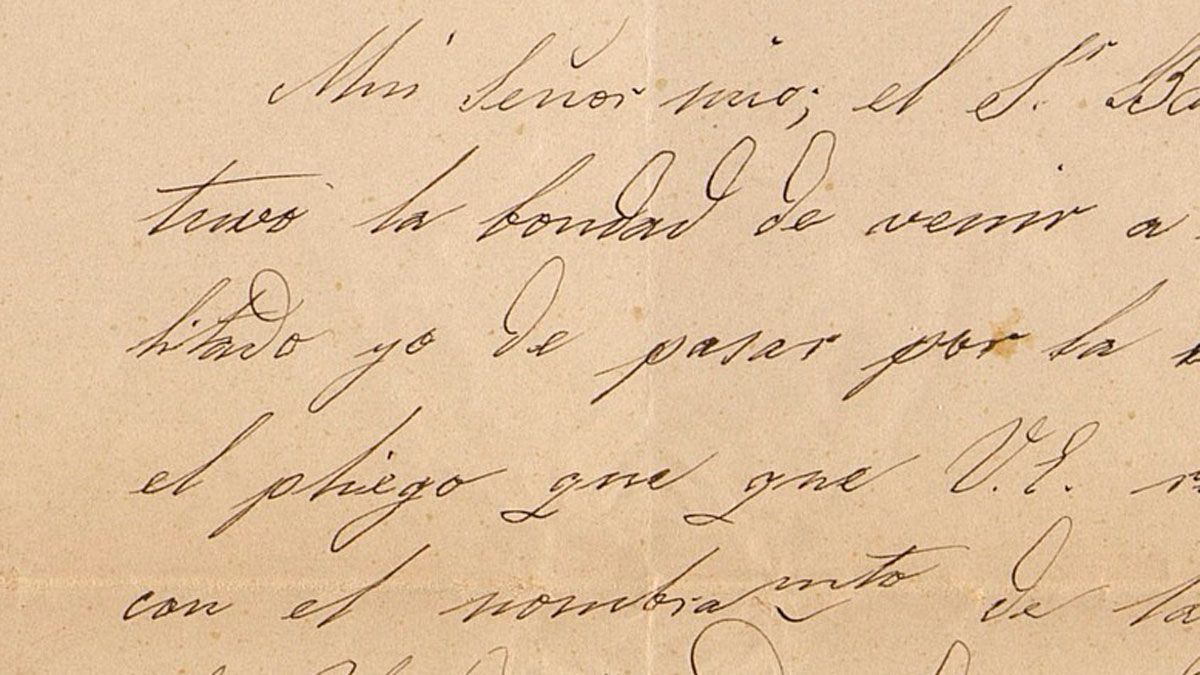 Muy Señor mio; el Sr
tuvo la bondad de venir a
litado yo de pasar por la
el pliego que que V.E.
con el nombramto de la